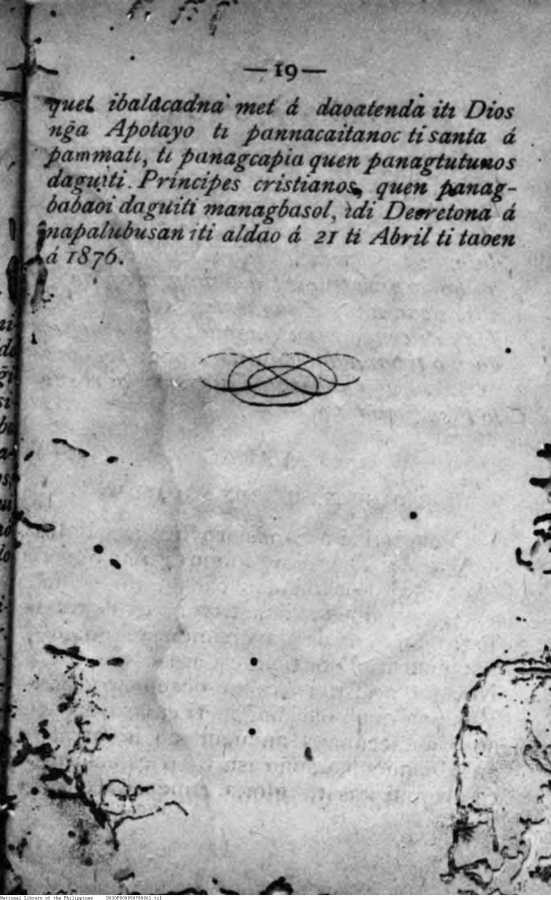 —19—
quet ibalacadna met á daoatenda iti Dios
nga Apotayo ti pannacaitanoc ti santa á
pammati, ti panagcapia quen panagtutunos
daguiti Principes cristianos, quen panag-
babaoi daguiti managbasol, idi Decretona á
napalubusan iti aldao á 21 ti Abril ti taoen
á 1876.
National Library of the Philippines